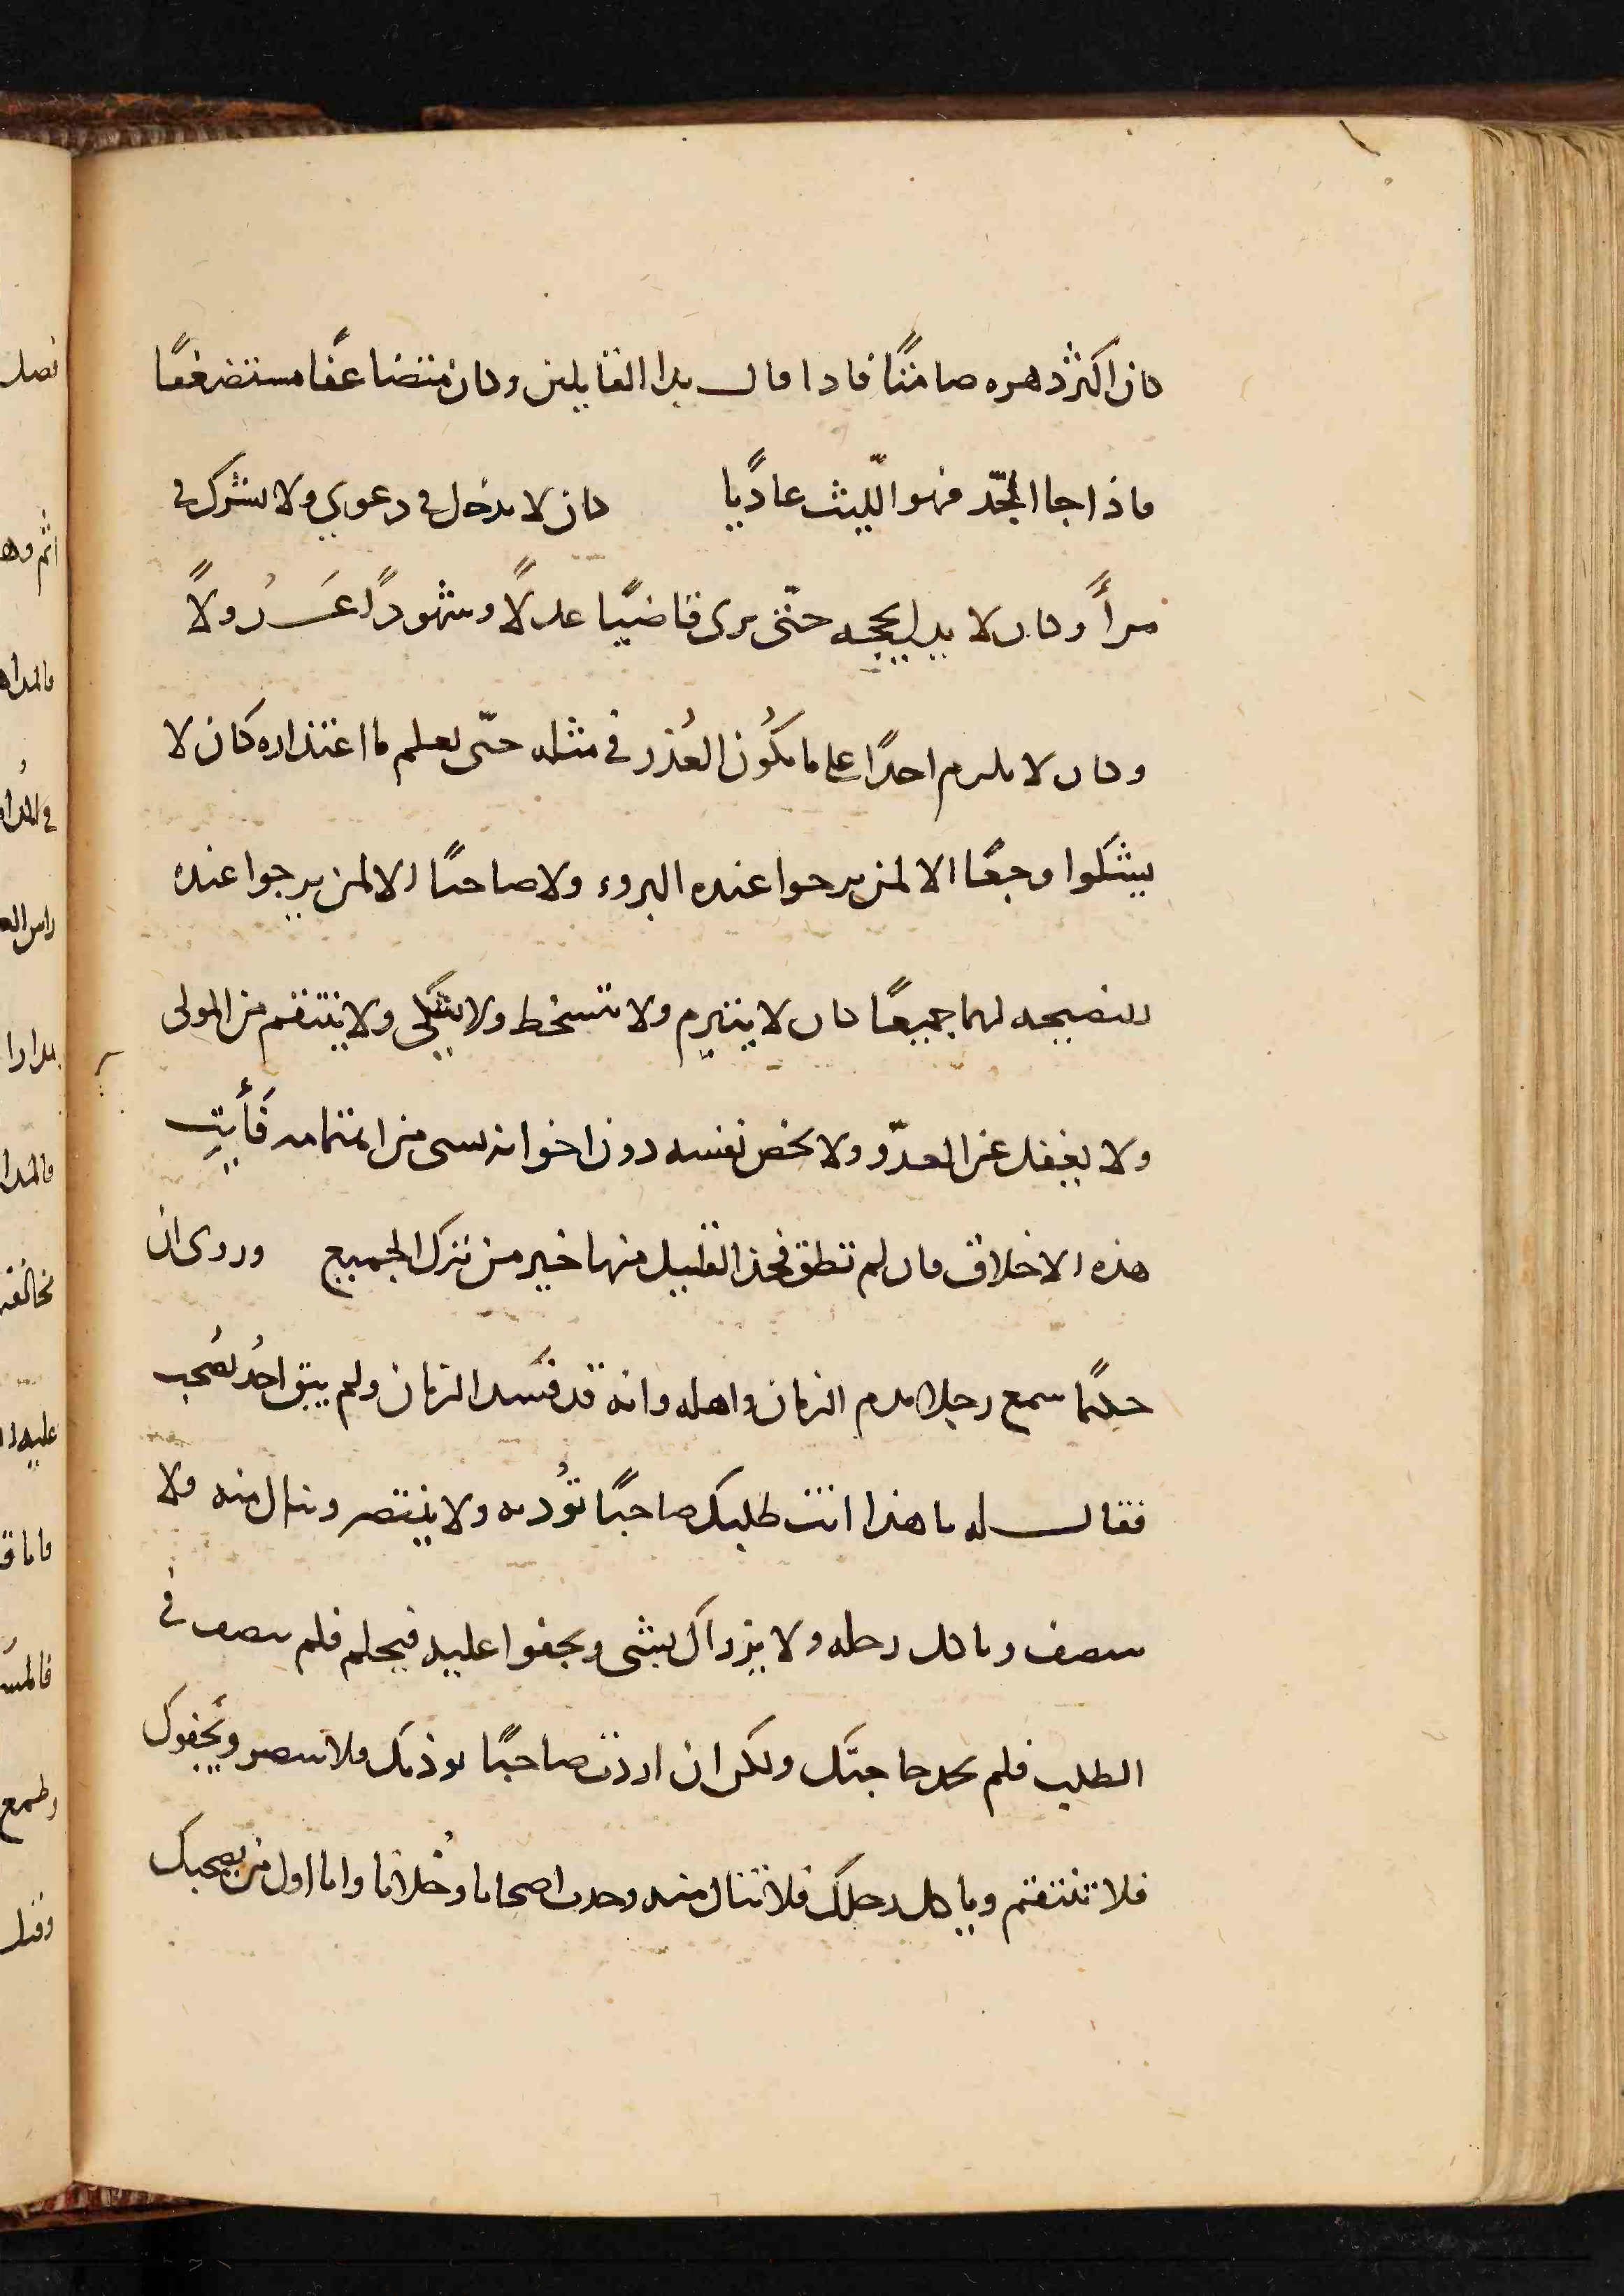 كان اكثر دهره صامتًا فاذا قال بدا القايلين وكان متضاعفًا مستضعفًا
فاذا جا الجّد فهو الّليث عاديًا كان لا يدخل في دعوى ولا يشرك في
مرأً وكان لا يدلى بحجه حتّى يرى قاضيًا عدلًا وشهودًا عَدُولًا
وكان لا يلوم احدًا على ما يكُون العُذر في مثله حتّى يعلم ما اعتذاره كان لا
يشكوا وجعًا الا لمن يرجوا عنده البروء ولا صاحبًا الا لمن يرجوا عنده
النصيحه لهما جميعًا كان لا يتبرم ولا يتسخط ولا يتشكى ولا ينتقم من المولى
ولا يغفل عن العدّو ولا يخص نفسه دون اخوانه بشى من اهتمامه فَأيتِ
هذه الاخلاق فان لم تطق فخذ القليل منها خير من ترك الجميع وروى ان
حكيمًا سمع رجلا يذم الزمان واهله وانه قد فَسد الزمان ولم يبق احدُ يُصحب
فقال له يا هذا انت طلبك صاحبًا تُوذيه ولا ينتصر وتنال منه ولا
ينصف وتاكل رحله ولا يرزاك بشى وتجفوا عليه فيحلم فلم تنصف في
الطلب فلم تجد حاجتك ولكن ان اردت صاحبًا يوذيك فلا تنتصر ويَجفوك
فلا تنتقم وياكل رحلك فلا تنال منه وجدت اصحابا وخُلانا وانا اول من يصحبك